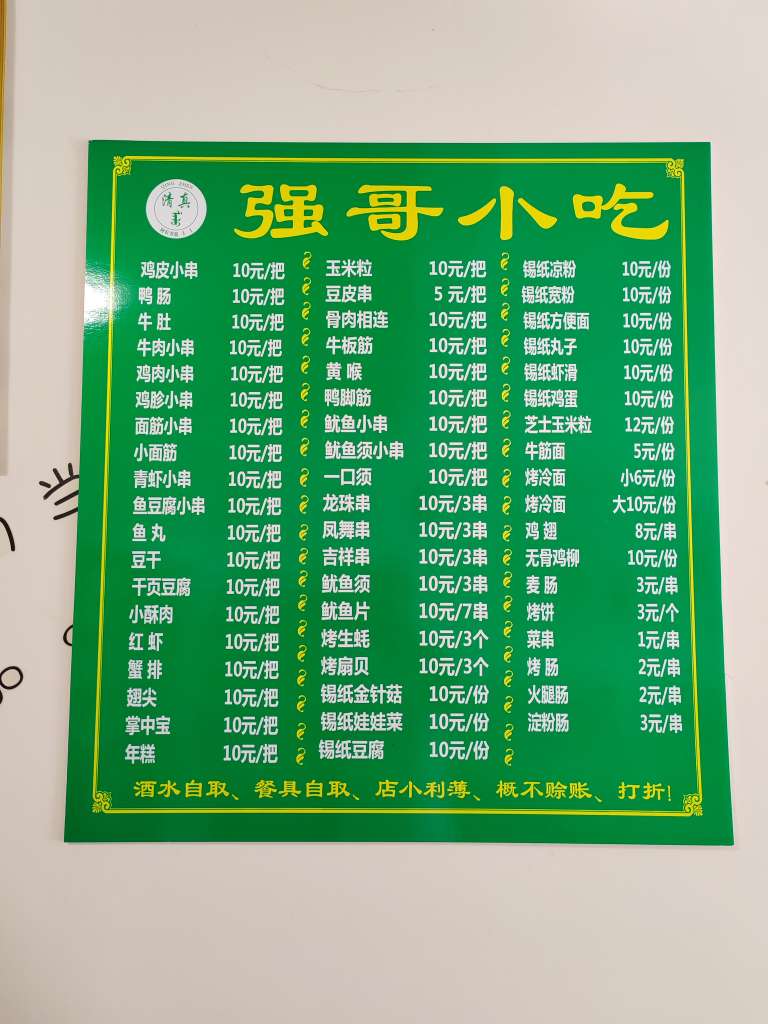 清真
强哥小吃
鸡皮小串 10元/把
鸭肠 10元/把
牛肚 10元/把
牛肉小串 10元/把
鸡肉小串 10元/把
鸡胗小串 10元/把
面筋小串 10元/把
小面筋 10元/把
青虾小串 10元/把
鱼豆腐小串 10元/把
鱼丸 10元/把
豆干 10元/把
千页豆腐 10元/把
小酥肉 10元/把
红虾 10元/把
蟹排 10元/把
翅尖 10元/把
掌中宝 10元/把
年糕 10元/把
玉米粒 10元/把
豆皮串 5元/把
骨肉相连 10元/把
牛板筋 10元/把
黄喉 10元/把
鸭脚筋 10元/把
鱿鱼小串 10元/把
鱿鱼须小串 10元/把
一口须 10元/把
龙珠串 10元/3串
凤舞串 10元/3串
吉祥串 10元/3串
鱿鱼须 10元/3串
鱿鱼片 10元/7串
烤生蚝 10元/3个
烤扇贝 10元/3个
锡纸金针菇 10元/份
锡纸娃娃菜 10元/份
锡纸豆腐 10元/份
锡纸凉粉 10元/份
锡纸宽粉 10元/份
锡纸方便面 10元/份
锡纸丸子 10元/份
锡纸虾滑 10元/份
锡纸鸡蛋 10元/份
芝士玉米粒 12元/份
牛筋面 5元/份
烤冷面 小6元/份
烤冷面 大10元/份
鸡翅 8元/串
无骨鸡柳 10元/份
麦肠 3元/串
烤饼 3元/个
菜串 1元/串
烤肠 2元/串
火腿肠 2元/串
淀粉肠 3元/串
酒水自取、餐具自取、店小利薄、概不赊账、打折！